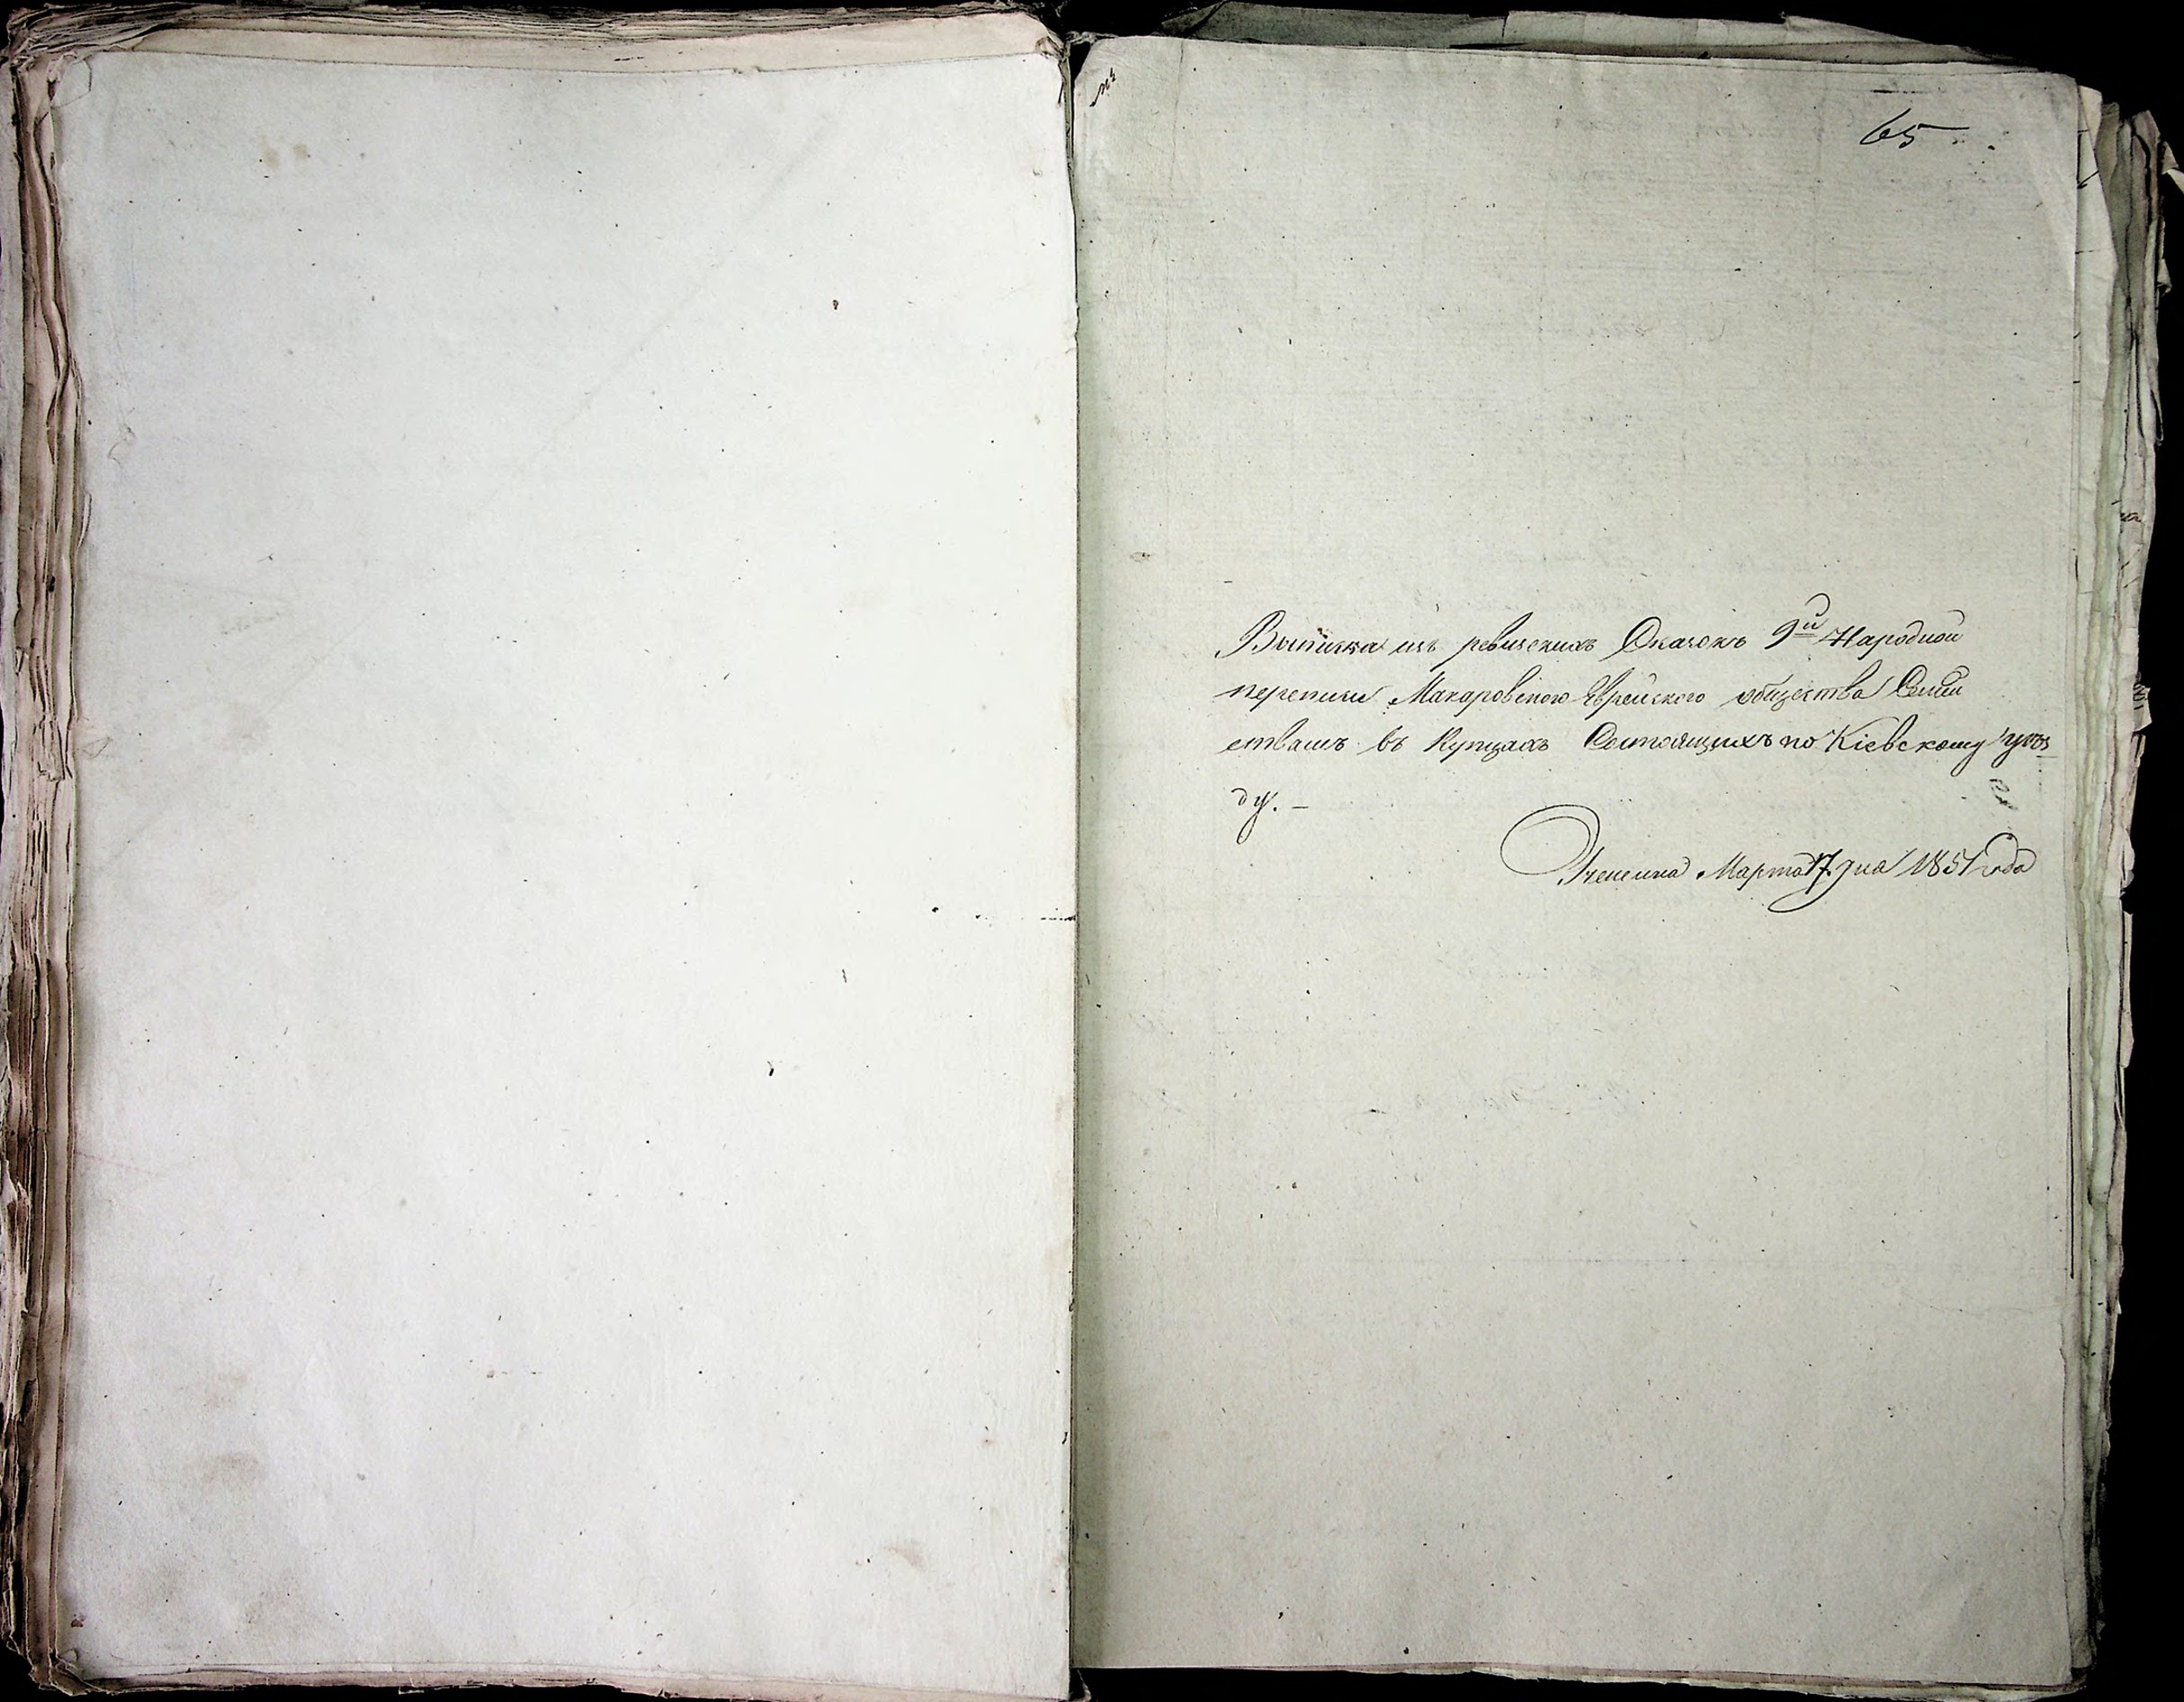 65
Выписка изъ ревизскихъ Сказокъ 9й Народной
переписи Макаровского Еврейского общества Семей
ствамъ въ Купцахъ Состоящихъ по Кіевскому уѣз
ду. —
Марта 17 дня 1851 года